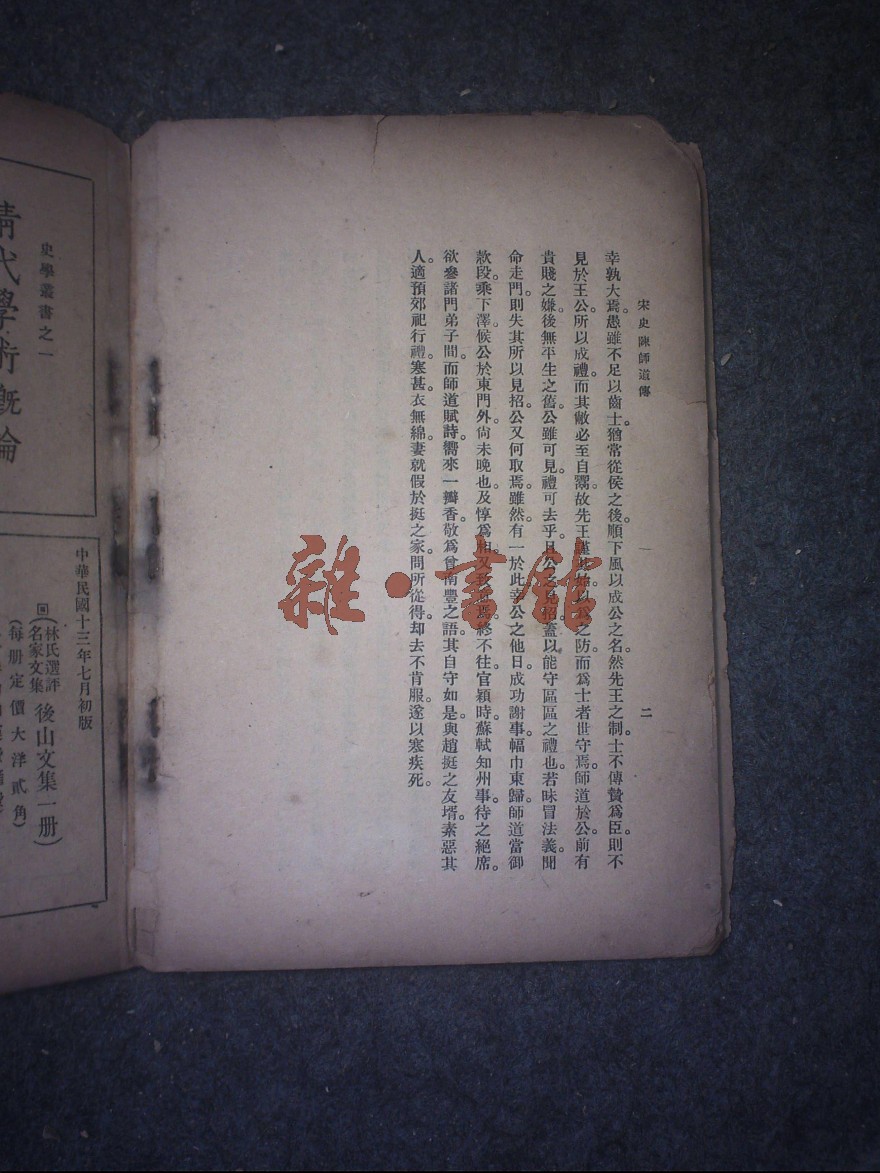 宋史陳師道傳 二
幸孰大焉。愚雖不足以齒士。猶常從侯之後。順下風以成公之名。然先王之制。士不傳贄爲臣。則不
見於王公。所以成禮。而其敝必至自鬻。故先王謹其始以爲之防。而爲士者世守焉。師道於公。前有
貴賤之嫌。後無平生之舊。公雖可見。禮可去乎。且公之見招。蓋以能守區區之禮也。若昧冒法義。聞
命走門。則失其所以見招。公又何取焉。雖然。有一於此。幸公之他日成功謝事。幅巾東歸。師道當御
款段。乘下澤。候公於東門外。尙未晚也。及惇爲相。又致意焉。終不往。官潁時。蘇軾知州事。待之絕席。
欲參諸門弟子間。而師道賦詩。嚮來一瓣香。敬爲曾南豐之語。其自守如是。與趙挺之友壻。素惡其
人。適預郊祀行禮。寒甚。衣無綿。妻就假於挺之家。問所從得。却去不肯服。遂以寒疾死。
雜·書館
史學叢書之一
清代學術概論
中華民國十三年七月初版
(林氏選評
名家文集 後山文集一册)
(每册定價大洋貳角)